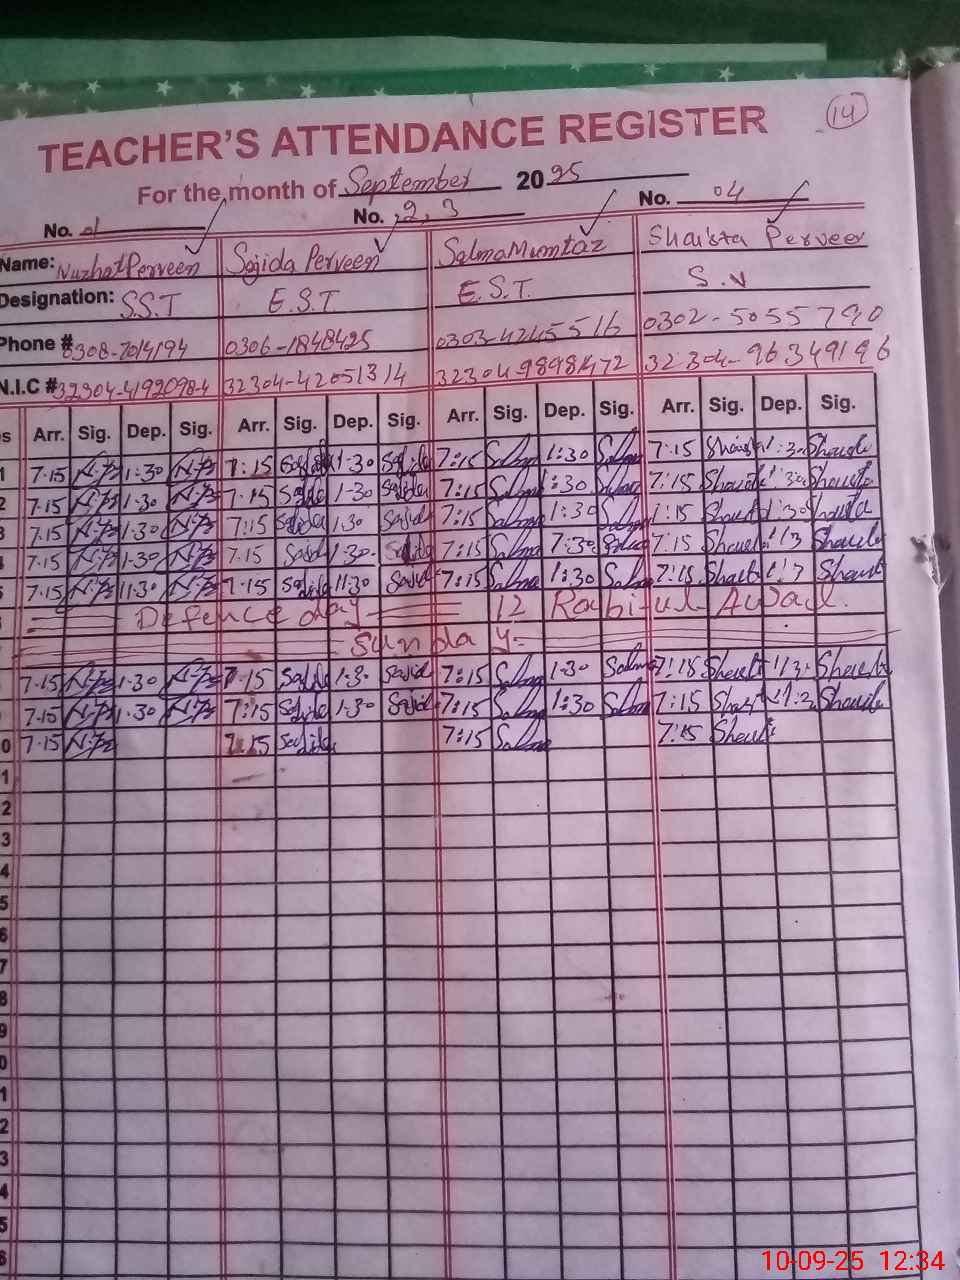 14
TEACHER'S ATTENDANCE REGISTER
For the month of September 2025
No. 1 No. 2, 3 No. 04
Name: Nuzhat Perveen Sajida Perveen Salma Mumtaz Shaista Perveen
Designation: S.S.T E.S.T E.S.T. S.V
Phone # 0308-7014194 0306-1848425 0303-4245516 0302-5055790
N.I.C # 32304-4192098-4 32304-4205131 4 32304-9898472 32304-9634919 6
s Arr. Sig. Dep. Sig. Arr. Sig. Dep. Sig. Arr. Sig. Dep. Sig. Arr. Sig. Dep. Sig.
1 7.15 1.30 7:15 Sajida 1-30 Sajida 7:15 Salma 1:30 Salma 7:15 Shaista 1:30 Shaista
2 7.15 1.30 7.15 Sajida 1-30 Sajida 7:15 Salma 1:30 Salma 7:15 Shaista 1:30 Shaista
3 7.15 1.30 7:15 Sajida 1.30 Sajida 7:15 Salma 1:30 Salma 7:15 Shaista 1:30 Shaista
4 7.15 1.30 7.15 Sajida 1.30 Sajida 7:15 Salma 7:30 Salma 7:15 Shaista 1:3 Shaista
5 7.15 1.30 7.15 Sajida 1:30 Sajida 7:15 Salma 1:30 Salma 7:15 Shaista Shaista
Defence day 12 Rabiful Awal.
Sunday
7.15 1.30 7.15 Sajida 1.3. Sajida 7:15 Salma 1.30 Salma 7:15 Shaista 1:3. Shaista
7.15 1.30 7:15 Sajida 1-30 Sajida 7:15 Salma 1:30 Salma 7:15 Shaista Shaista
0 7.15 7.15 Sajida 7:15 Salma 7:15 Shaista
1
2
3
4
5
6
7
8
9
0
1
2
3
4
5
6
10-09-25 12:34